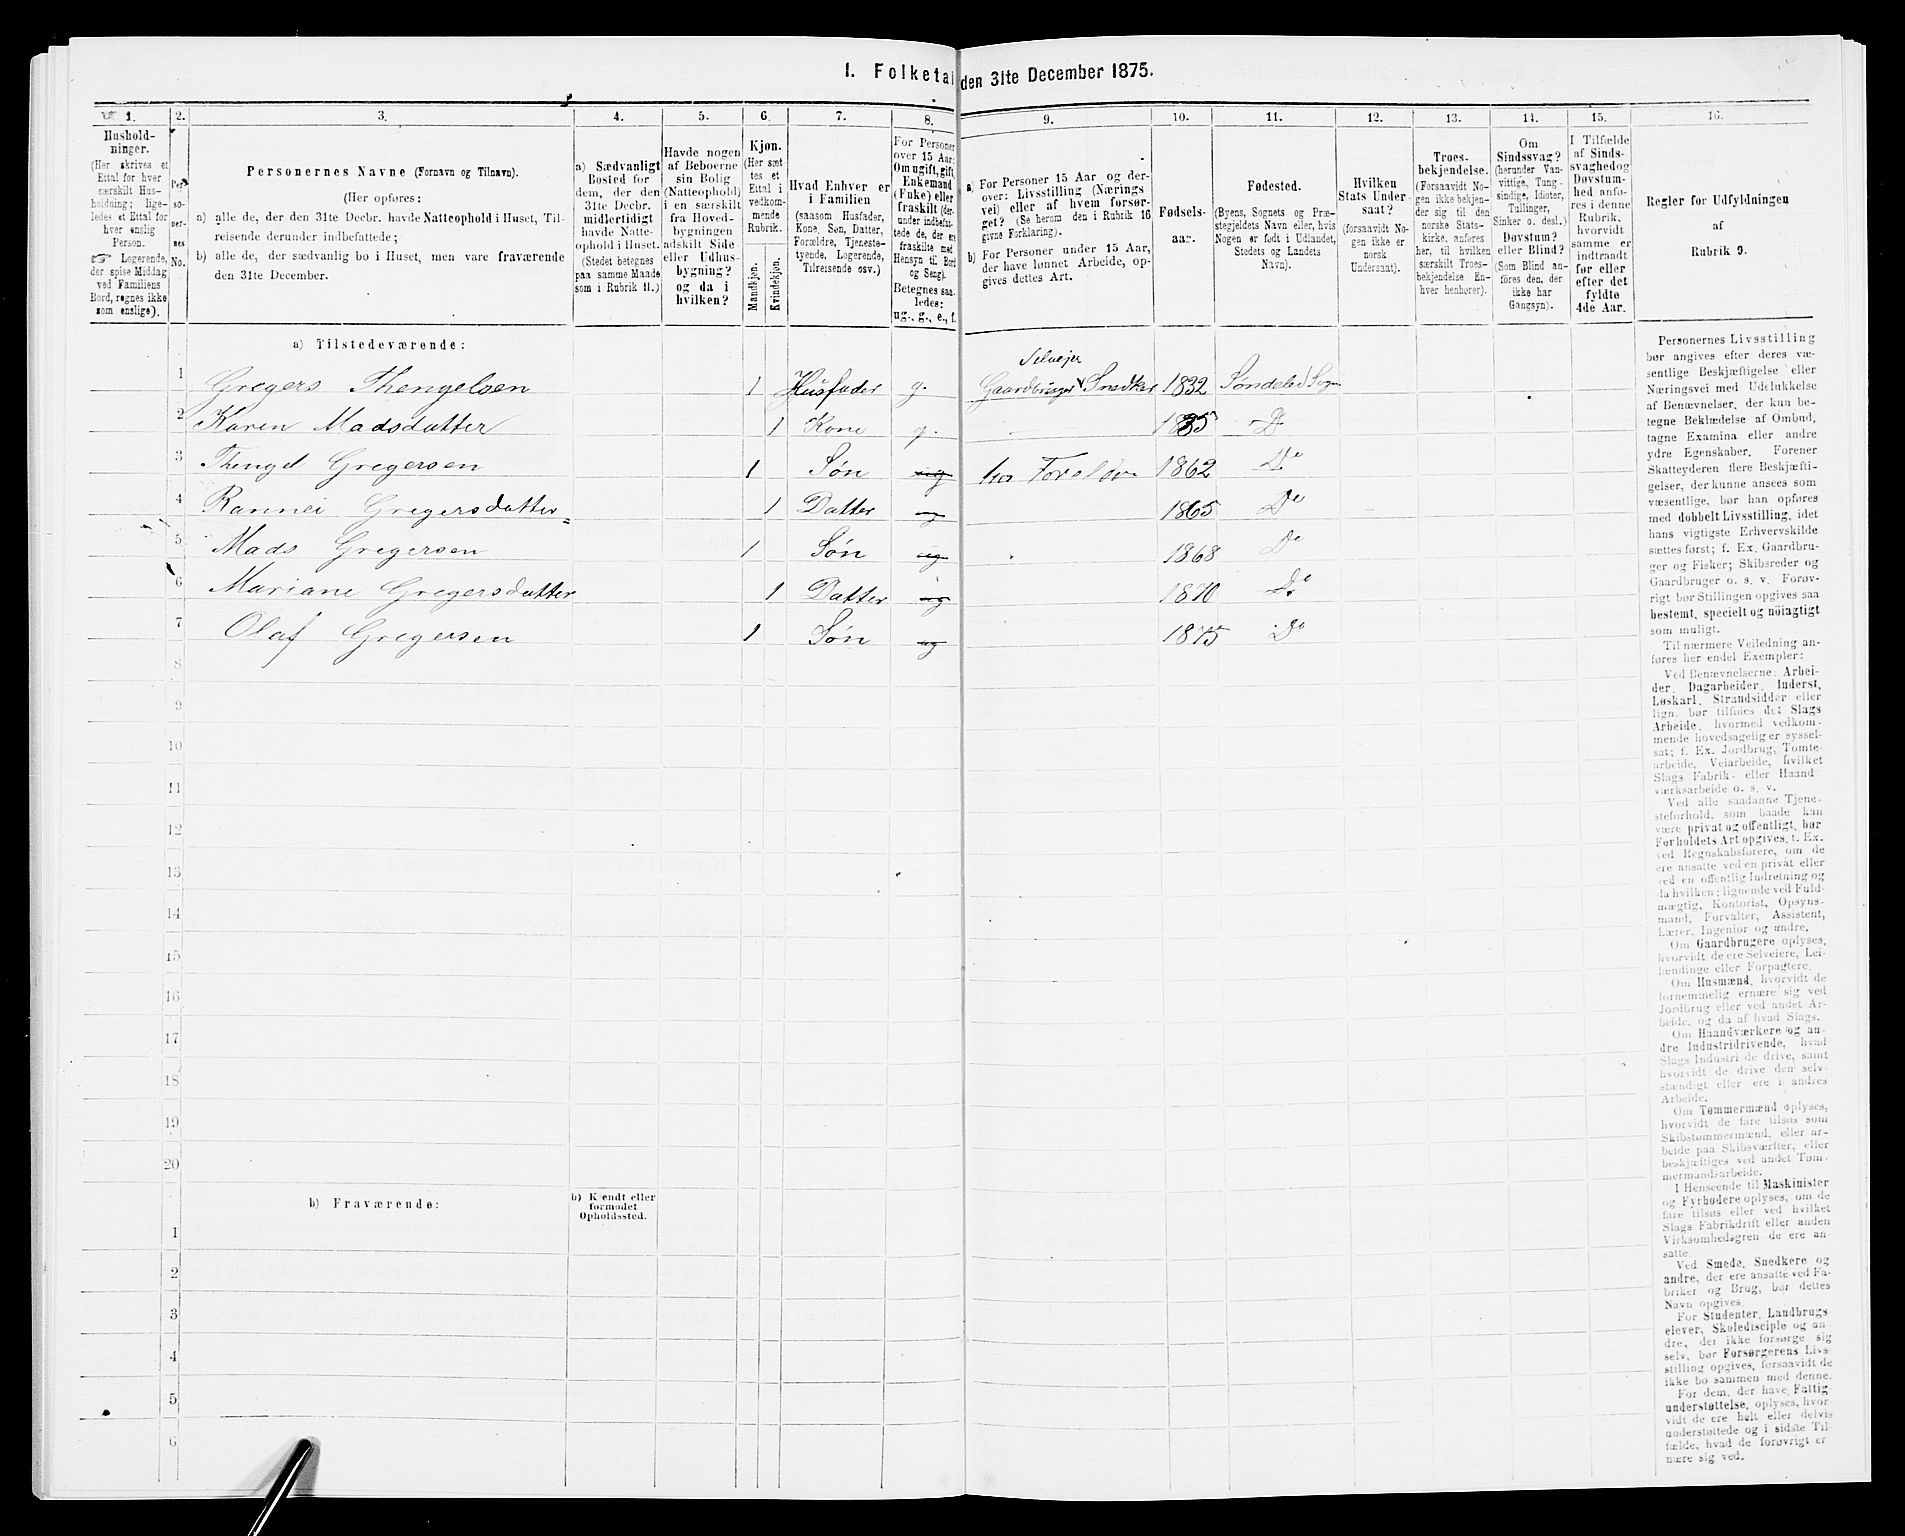 I. Folketal den 31te December 1875.
1.
Husholdninger.
(Her skrives et
Ettal for hver
særskilt Husholdning; ligeledes
et Ettal for
hver enslig
Person.
☞ Logerende,
der spise Middag
ved Familiens
Bord, regnes ikke
som enslige).
2.
Personernes
No.
3.
Personernes Navne (Fornavn og Tilnavn).
(Her opføres:
a) alle de, der den 31te Decbr. havde Natteophold i Huset, Tilreisende
derunder indbefattede;
b) alle de, der sædvanlig bo i Huset, men vare fraværende
den 31te December.
4.
a) Sædvanligt
Bosted for
dem, der den
31te Decbr.
midlertidigt
havde Natteophold
i Huset.
(Stedet betegnes
paa samme Maade
som i Rubrik 11.)
5.
Havde nogen
af Beboerne
sin Bolig
(Natteophold)
i en særskilt
fra Hovedbygningen
adskilt Side-
eller Udhusbygning?
og da i
hvilken?
6.
Kjøn.
(Her sættes
et
Ettal i
vedkommende
Rubrik.
Mandkjøn.
Kvindekjøn.
7.
Hvad Enhver er
i Familien
(saasom Husfader,
Kone, Søn, Datter,
Forældre, Tjenestetyende,
Logerende,
Tilreisende osv.)
8.
For Personer
over 15 Aar:
Om ugift, gift,
Enkemand
(Enke) eller
fraskilt (derunder
indbefattede
de, der ere
fraskilte med
Hensyn til Bord
og Seng).
Betegnes saaledes:
ug., g., e., f.
9.
a) For Personer 15 Aar og derover:
Livsstilling (Næringsvei)
eller af hvem forsørget?
(Se herom den i Rubrik 16
givne Forklaring).
b) For Personer under 15 Aar,
der have lønnet Arbeide, opgives
dettes Art.
10.
Fødselsaar.
11.
Fødested.
(Byens, Sognets og Præstegjeldets
Navn eller, hvis
Nogen er født i Udlandet,
Stedets og Landets
Navn).
12.
Hvilken
Stats Undersaat?
(forsaavidt Nogen
ikke er
norsk
Undersaat).
13.
Troesbekjendelse.
(Forsaavidt Nogen
ikke bekjender
sig til den
norske Statskirke,
anføres
her, til hvilken
særskilt Troesbekjendelse
Enhver
henhører).
14.
Om
Sindssvag?
(herunder Vanvittige,
Tungsindige,
Idioter,
Tullinger,
Sinker o. desl.)
Døvstum?
eller Blind?
(Som Blind anføres
den, der
ikke har
Gangsyn).
15.
I Tilfælde
af Sindssvaghed
og
Døvstumhed
anføres
i denne
Rubrik,
hvorvidt
samme er
indtraadt
før eller
efter det
fyldte
4de Aar.
16.
Regler for Udfyldningen
af
Rubrik 9.
a) Tilstedeværende:
Selveier
1 Gregers Thengelsen 1 Husfader g. Gaardbruger Snedker 1832 Søndeled Sogn
2 Karen Madsdatter 1 Kone g. 1835 D
3 Thengel Gregersen 1 Søn ug hos Foreldre 1862 Do
4 Rannei Gregersdatter 1 Datter ug 1865 Do
5 Mads Gregersen 1 Søn ug 1868 Do
6 Mariane Gregersdatter 1 Datter ug 1870 Do
7 Olaf Gregersen 1 Søn ug 1875 Do
8
9
10
11
12
13
14
15
16
17
18
19
20
b) Fraværende:
b) Kjendt eller
formodet
Opholdssted.
1
2
3
4
5
6
Personernes Livsstilling
bør angives efter deres væsentlige
Beskjæftigelse eller
Næringsvei med Udelukkelse
af Benævnelser, der kun betegne
Beklædelse af Ombud,
tagne Examina eller andre
ydre Egenskaber. Forener
Skatteyderen flere Beskjæftigelser,
der kunne ansees som
væsentlige, bør han opføres
med dobbelt Livsstilling, idet
hans vigtigste Erhvervskilde
sættes først; f. Ex. Gaardbruger
og Fisker; Skibsreder og
Gaardbruger o. s. v. Forøvrigt
bør Stillingen opgives saa
bestemt, specielt og nøiagtigt
som muligt.
Til nærmere Veiledning anføres
her endel Exempler:
Ved Benævnelserne: Arbeider,
Dagarbeider, Inderst,
Løskarl, Strandsidder eller
lign. bør tilføies det Slags
Arbeide, hvormed vedkommende
hovedsagelig er sysselsat;
f. Ex. Jordbrug, Tomtearbeide,
Veiarbeide, hvilket
Slags Fabrik- eller Haandværksarbeide
o. s. v.
Ved alle saadanne Tjenesteforhold,
som baade kan
være privat og offentligt, bør
Forholdets Art opgives, t. Ex.
ved Regnskabsførere, om de
ere ansatte ved en privat eller
ved en offentlig Indretning og
da hvilken; lignende ved Fuldmægtig,
Kontorist, Opsynsmand,
Forvalter, Assistent,
Lærer, Ingeniør og andre.
Om Gaardbrugere oplyses,
hvorvidt de ere Selveiere, Leilændinge
eller Forpagtere.
Om Husmænd, hvorvidt de
fornemmelig ernære sig ved
Jordbrug eller ved andet Arbeide,
og da af hvad Slags.
Om Haandværkere og andre
Industridrivende, hvad
Slags Industri de drive, samt
hvorvidt de drive den selvstændigt
eller ere i andres
Arbeide.
Om Tømmermænd oplyses,
hvorvidt de fare tilsøs som
Skibstømmermænd, eller arbeide
paa Skibsværfter, eller
beskjæftiges ved andet Tømmermandsarbeide.
I Henseende til Maskinister
og Fyrbødere oplyses, om de
fare tilsøs eller ved hvilket
Slags Fabrikdrift eller anden
Virksomhedsgren de ere ansatte.
Ved Smede, Snedkere og
andre, der ere ansatte ved Fabriker
og Brug, bør dettes
Navn opgives.
For Studenter, Landbrugselever,
Skoledisciple og andre,
der ikke forsørge sig
selv, bør Forsørgerens Livsstilling
opgives, forsaavidt de
ikke bo sammen med denne.
For dem, der have Fattigunderstøttelse,
oplyses, hvorvidt
de ere helt eller delvis
understøttede og i sidste Tilfælde,
hvad de forøvrigt ernære
sig ved.